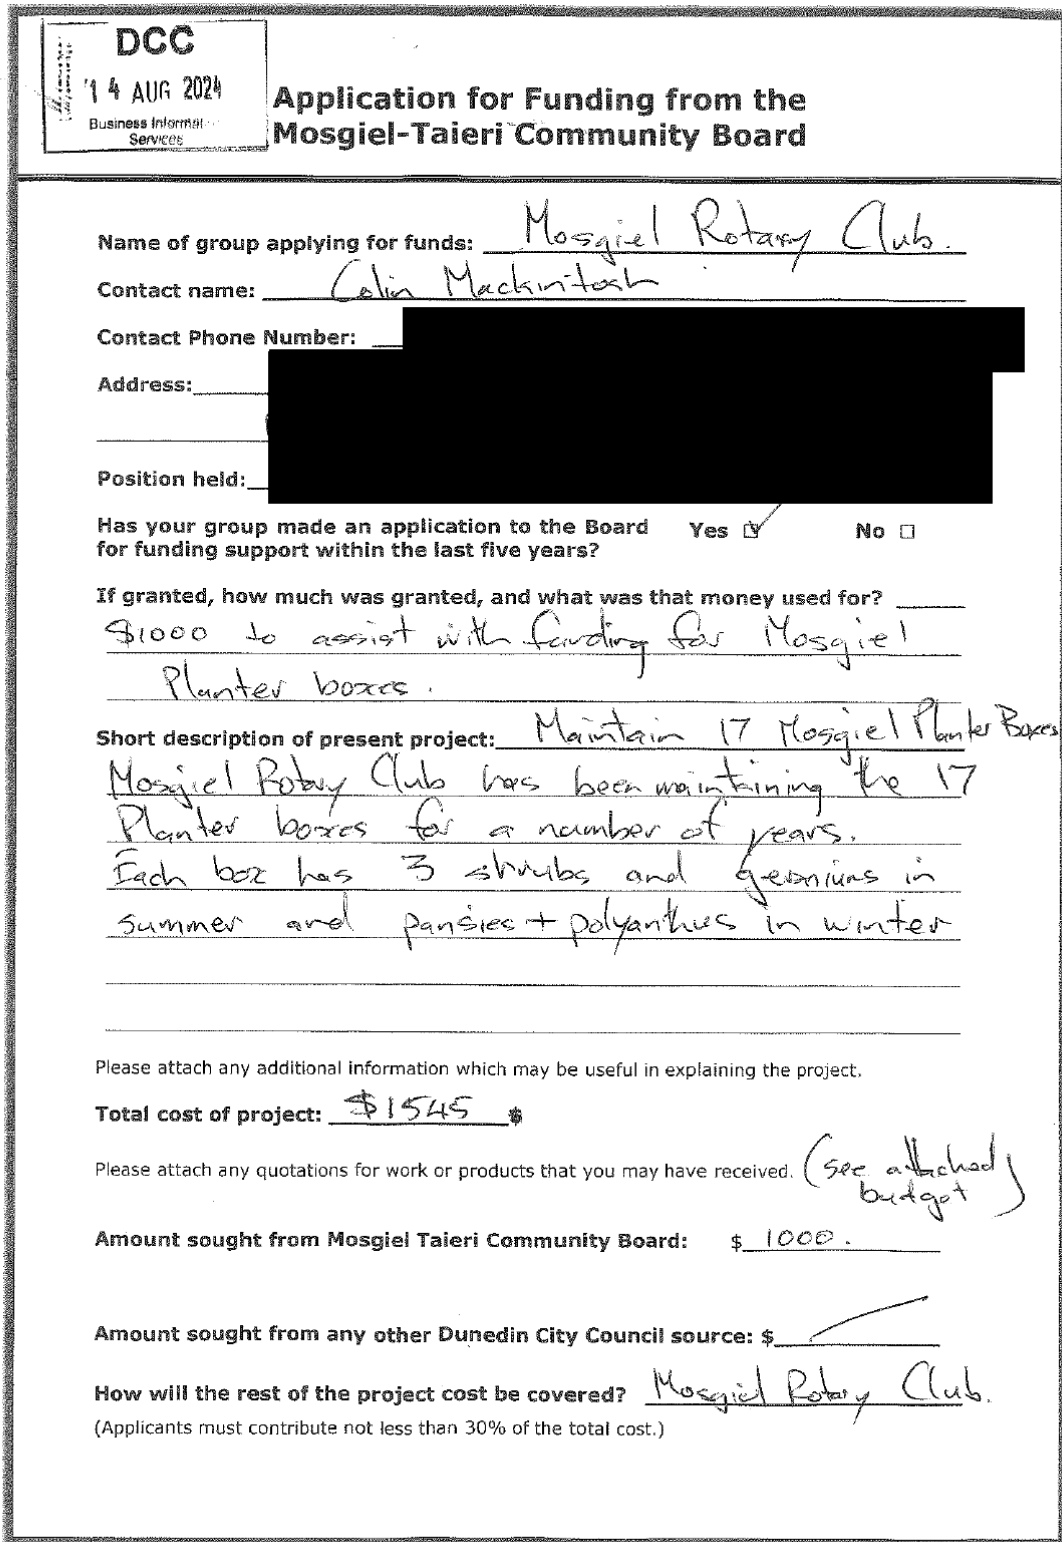 DCC
14 AUG 2024
Business Informat
Services
Application for Funding from the
Mosgiel-Taieri Community Board
Name of group applying for funds: Mosgiel Rotary Club.
Contact name: Colin Mackintosh
Contact Phone Number:
Address:
Position held:
Has your group made an application to the Board Yes ☑ No ☐
for funding support within the last five years?
If granted, how much was granted, and what was that money used for?
$1000 to assist with funding for Mosgiel
Planter boxes.
Short description of present project: Maintain 17 Mosgiel Planter Boxes
Mosgiel Rotary Club has been maintaining the 17
Planter boxes for a number of years.
Each box has 3 shrubs and geraniums in
summer and pansies + polyanthus in winter
Please attach any additional information which may be useful in explaining the project.
Total cost of project: $1545 $
Please attach any quotations for work or products that you may have received. (see attached
budget)
Amount sought from Mosgiel Taieri Community Board: $ 1000.
Amount sought from any other Dunedin City Council source: $
How will the rest of the project cost be covered? Mosgiel Rotary Club.
(Applicants must contribute not less than 30% of the total cost.)